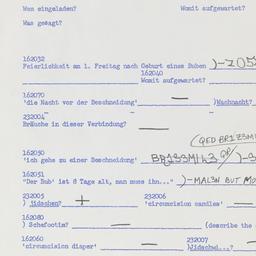 Wen eingeladen? Womit aufgewartet?
Was gesagt?
162032
Feierlichkeit am 1. Freitag nach Geburt eines Buben )-Z05
162040
Womit aufgewartet?
162070
'die Nacht vor der Beschneidung' — )Wachnacht?
232004
Bräuche in dieser Verbindung? —
(QED BRIZ3MI
162050 OR
'ich gehe zu einer Beschneidung' BRI33MIL3 )-3
162051
"Der Bub' ist 8 Tage alt, man muss ihn..." )-MAL3N BUT MO
232005 232006
) Jideschen? + 'circumcision candles' —
162080
) Schefoctim? — (describe the
162060 232007
'circumcision diaper' — )Jidschwi...?